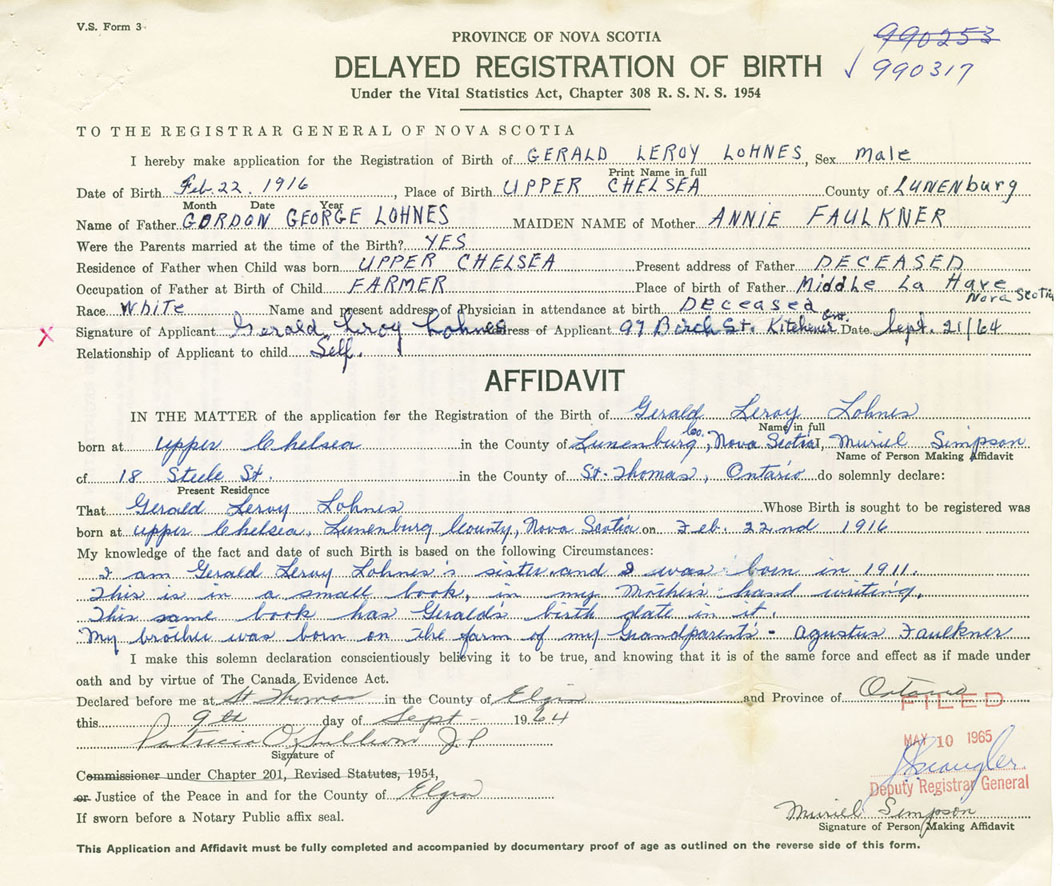 V.S. Form 3
990253
PROVINCE OF NOVA SCOTIA
DELAYED REGISTRATION OF BIRTH
✓ 990317
Under the Vital Statistics Act, Chapter 308 R. S. N. S. 1954
TO THE REGISTRAR GENERAL OF NOVA SCOTIA
I hereby make application for the Registration of Birth of GERALD LEROY LOHNES, Sex Male
Print Name in full
Date of Birth Feb. 22. 1916, Place of Birth UPPER CHELSEA County of LUNENBURG
Month Date Year
Name of Father GORDON GEORGE LOHNES MAIDEN NAME of Mother ANNIE FAULKNER
Were the Parents married at the time of the Birth? YES
Residence of Father when Child was born UPPER CHELSEA Present address of Father DECEASED
Occupation of Father at Birth of Child FARMER Place of birth of Father Middle La Have Nova Scotia
Race White Name and present address of Physician in attendance at birth Deceased
X Signature of Applicant Gerald Leroy Lohnes Address of Applicant 97 Birch St. Kitchener Ont. Date Sept. 21/64
Relationship of Applicant to child Self.
AFFIDAVIT
IN THE MATTER of the application for the Registration of the Birth of Gerald Leroy Lohnes
Name in full
born at Upper Chelsea in the County of Lunenburg Co., Nova Scotia I, Muriel Simpson
Name of Person Making Affidavit
of 18 Steele St. in the County of St. Thomas, Ontario do solemnly declare:
Present Residence
That Gerald Leroy Lohnes Whose Birth is sought to be registered was
born at Upper Chelsea, Lunenburg County, Nova Scotia on Feb. 22nd 1916
My knowledge of the fact and date of such Birth is based on the following Circumstances:
I am Gerald Leroy Lohnes's sister and I was born in 1911.
This is in a small book, in my Mother's hand writing.
This same book has Gerald's birth date in it.
My brother was born on the farm of my Grandparent's - Agustus Faulkner
I make this solemn declaration conscientiously believing it to be true, and knowing that it is of the same force and effect as if made under
oath and by virtue of The Canada Evidence Act.
Declared before me at St Thomas in the County of Elgin and Province of Ontario
FILED
this 9th day of Sept - 1964
MAY 10 1965
Patricia O'Sullivan J.P.
Signature of
Commissioner under Chapter 201, Revised Statutes, 1954,
Deputy Registrar General
or Justice of the Peace in and for the County of Elgin
Muriel Simpson
If sworn before a Notary Public affix seal.
Signature of Person Making Affidavit
This Application and Affidavit must be fully completed and accompanied by documentary proof of age as outlined on the reverse side of this form.